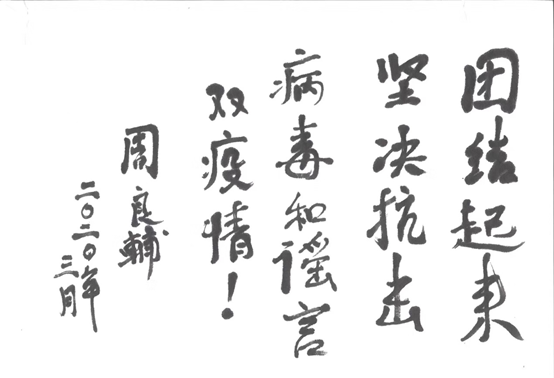 团结起来
坚决抗击
病毒和谣言
双疫情！
周良輔
二〇二〇年
三月